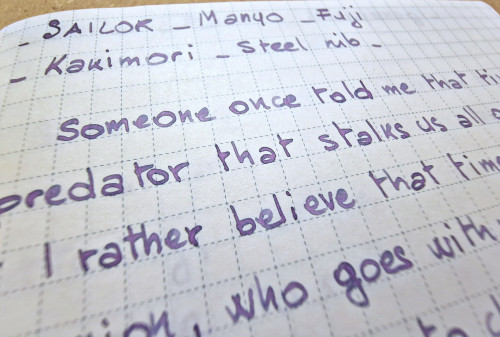 - SAILOR - Manyo - Fuji
- Kakimori - Steel nib -
Someone once told me that
predator that stalks us all
I rather believe that time
who goes with